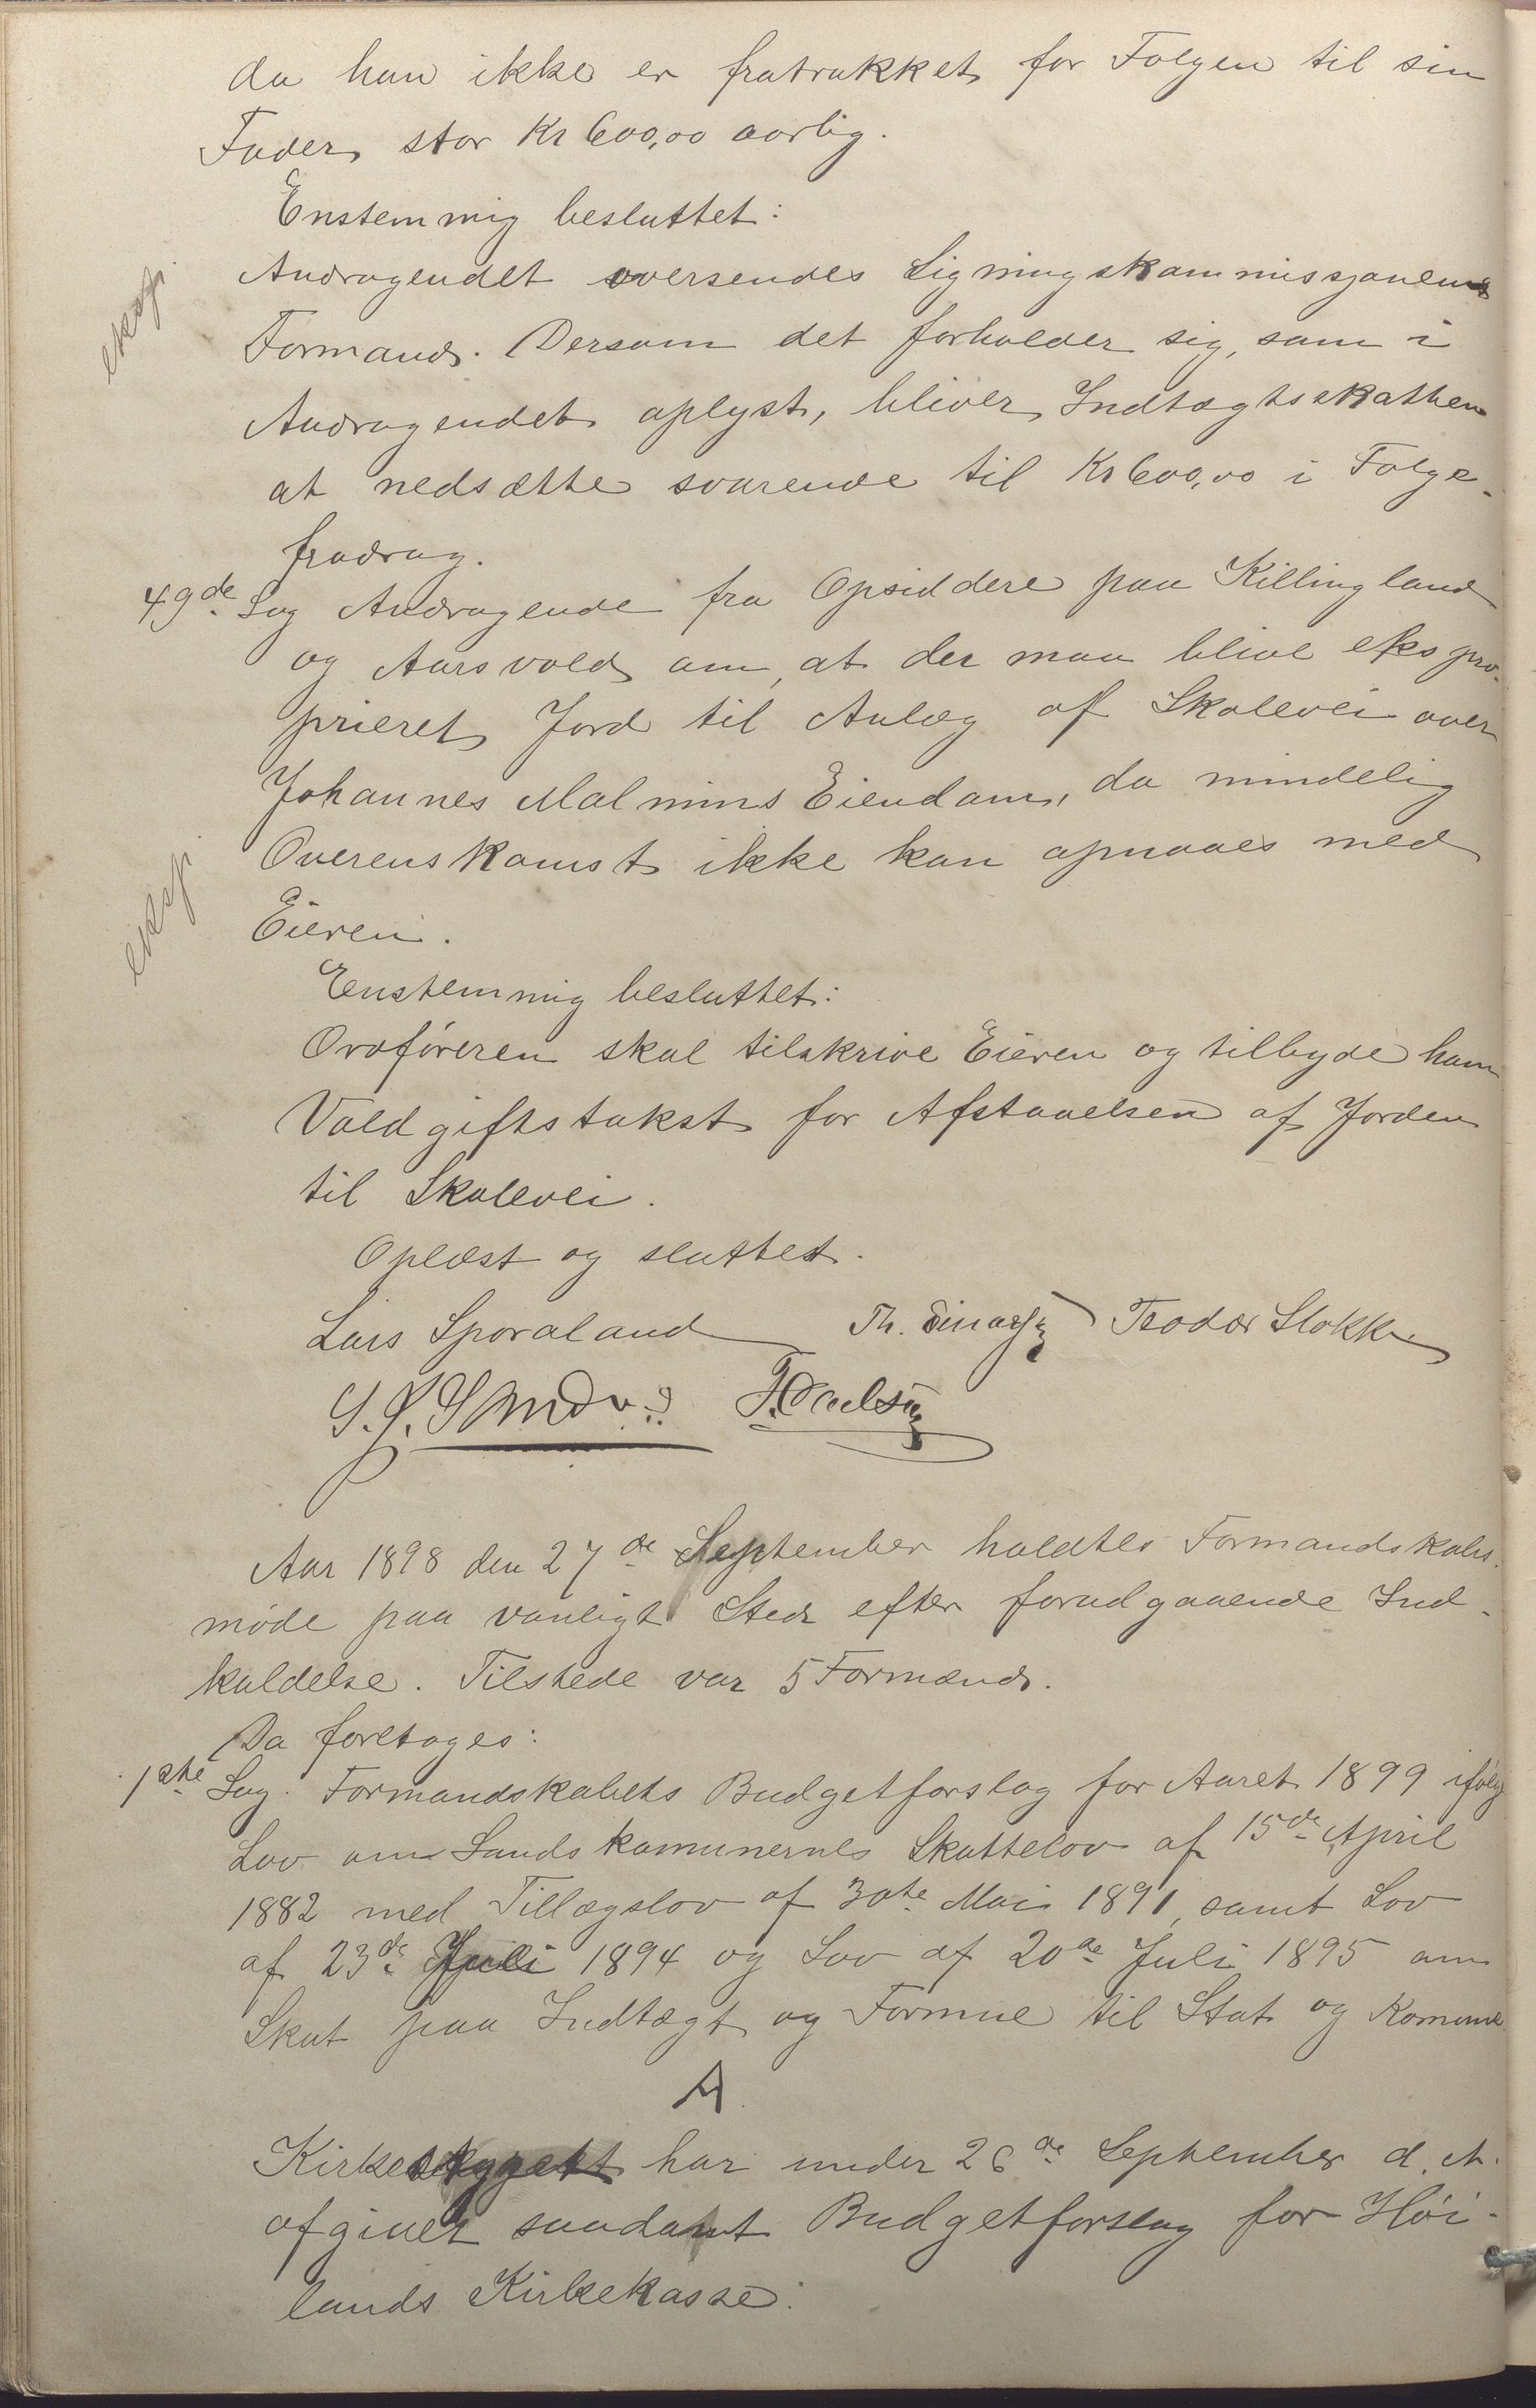 da han ikke er fratrukket for Følgen til sin
Fader, stor Kr 600,00 aarlig.
Enstemmig besluttet:
eksp.
Andragendet oversendes Ligningskommissjonens
Formand. Dersom det forholder sig, som i
Andragendet oplyst, bliver Indtægtsskatten
at nedsætte svarende til Kr 600,00 i Følge-
fradrag.
49de Sag Andragende fra Opsiddere paa Killingland
og Aarsvold om, at der maa blive ekspro-
prieret Jord til Anlæg af Skolevei over
Johannes Malmins Eiendom, da mindelig
Overenskomst ikke kan opnaaes med
eksp.
Eieren.
Enstemmig besluttet:
Ordføreren skal tilskrive Eieren og tilbyde ham
Voldgiftstakst for Afstaaelsen af Jorden
til Skolevei.
Oplæst og sluttet.
Lars Sporaland Th. Teodor Stokke
Aar 1898 den 27de September holdtes Formandskabs-
møde paa vanligt Sted efter forudgaaende Ind-
kaldelse. Tilstede var 5 Formænd.
Da foretoges:
1ste Sag. Formandskabets Budgetforslag for Aaret 1899 ifølg
Lov om Landskomunernes Skattelov af 15de April
1882 med Tillægslov af 30te Mai 1891, samt Lov
af 23de Juli 1894 og Lov af 20de Juli 1895 om
Skat paa Indtægt og Formue til Stat og Komune
A
har under 26de September d. A.
afgivet saadant Budgetforslag for Høi-
lands Kirkekasse: